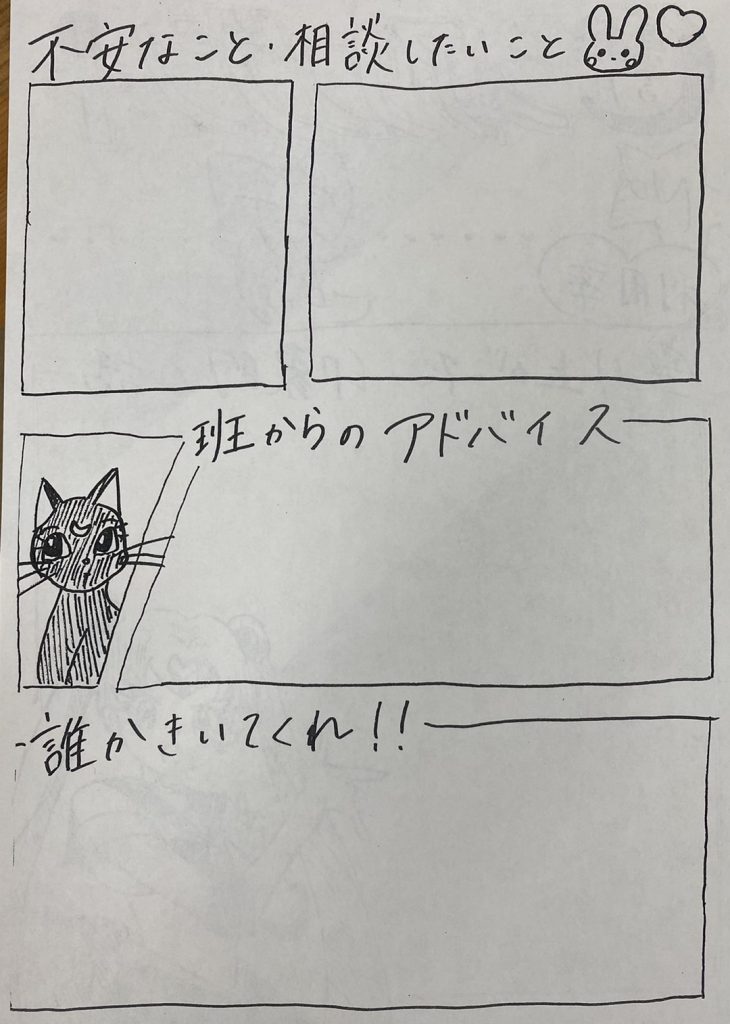 不安なこと・相談したいこと
班からのアドバイス
誰かきいてくれ!!